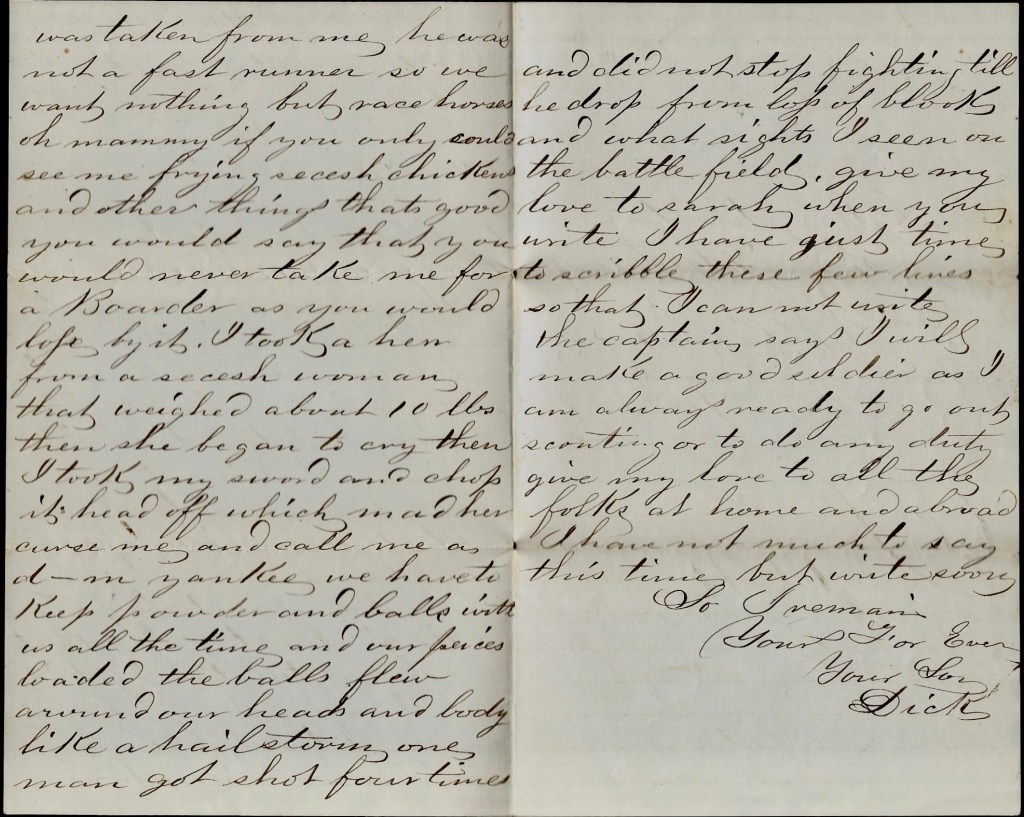 was taken from me, he was
not a fast runner so we
want nothing but race horses
oh mammy if you only could
see me frying secesh chickens
and other things thats good
you would say that you
would never take me for
a Boarder as you would
lose by it. I took a hen
from a secesh woman
that weighed about 10 lbs
then she began to cry then
I took my sword and chop
it head off which mad her
curse me and call me a
d-m yankee, we have to
Keep powder and balls with
us all the time and our peices
loaded the balls flew
around our heads and body
like a hail storm, one
man got shot four times
and did not stop fighting till
he drop from loss of blood
and what sights I seen on
the battle field. give my
love to sarah, when you
write I have just time
to scribble these few lines
so that I can not write
the captain, says I will
make a good soldier as I
am always ready to go out
scouting or to do any duty
give my love to all the
folks at home and abroad
I have not much to say
this time, but write soon
So I remain
Yours For Ever
Your Son
Dick